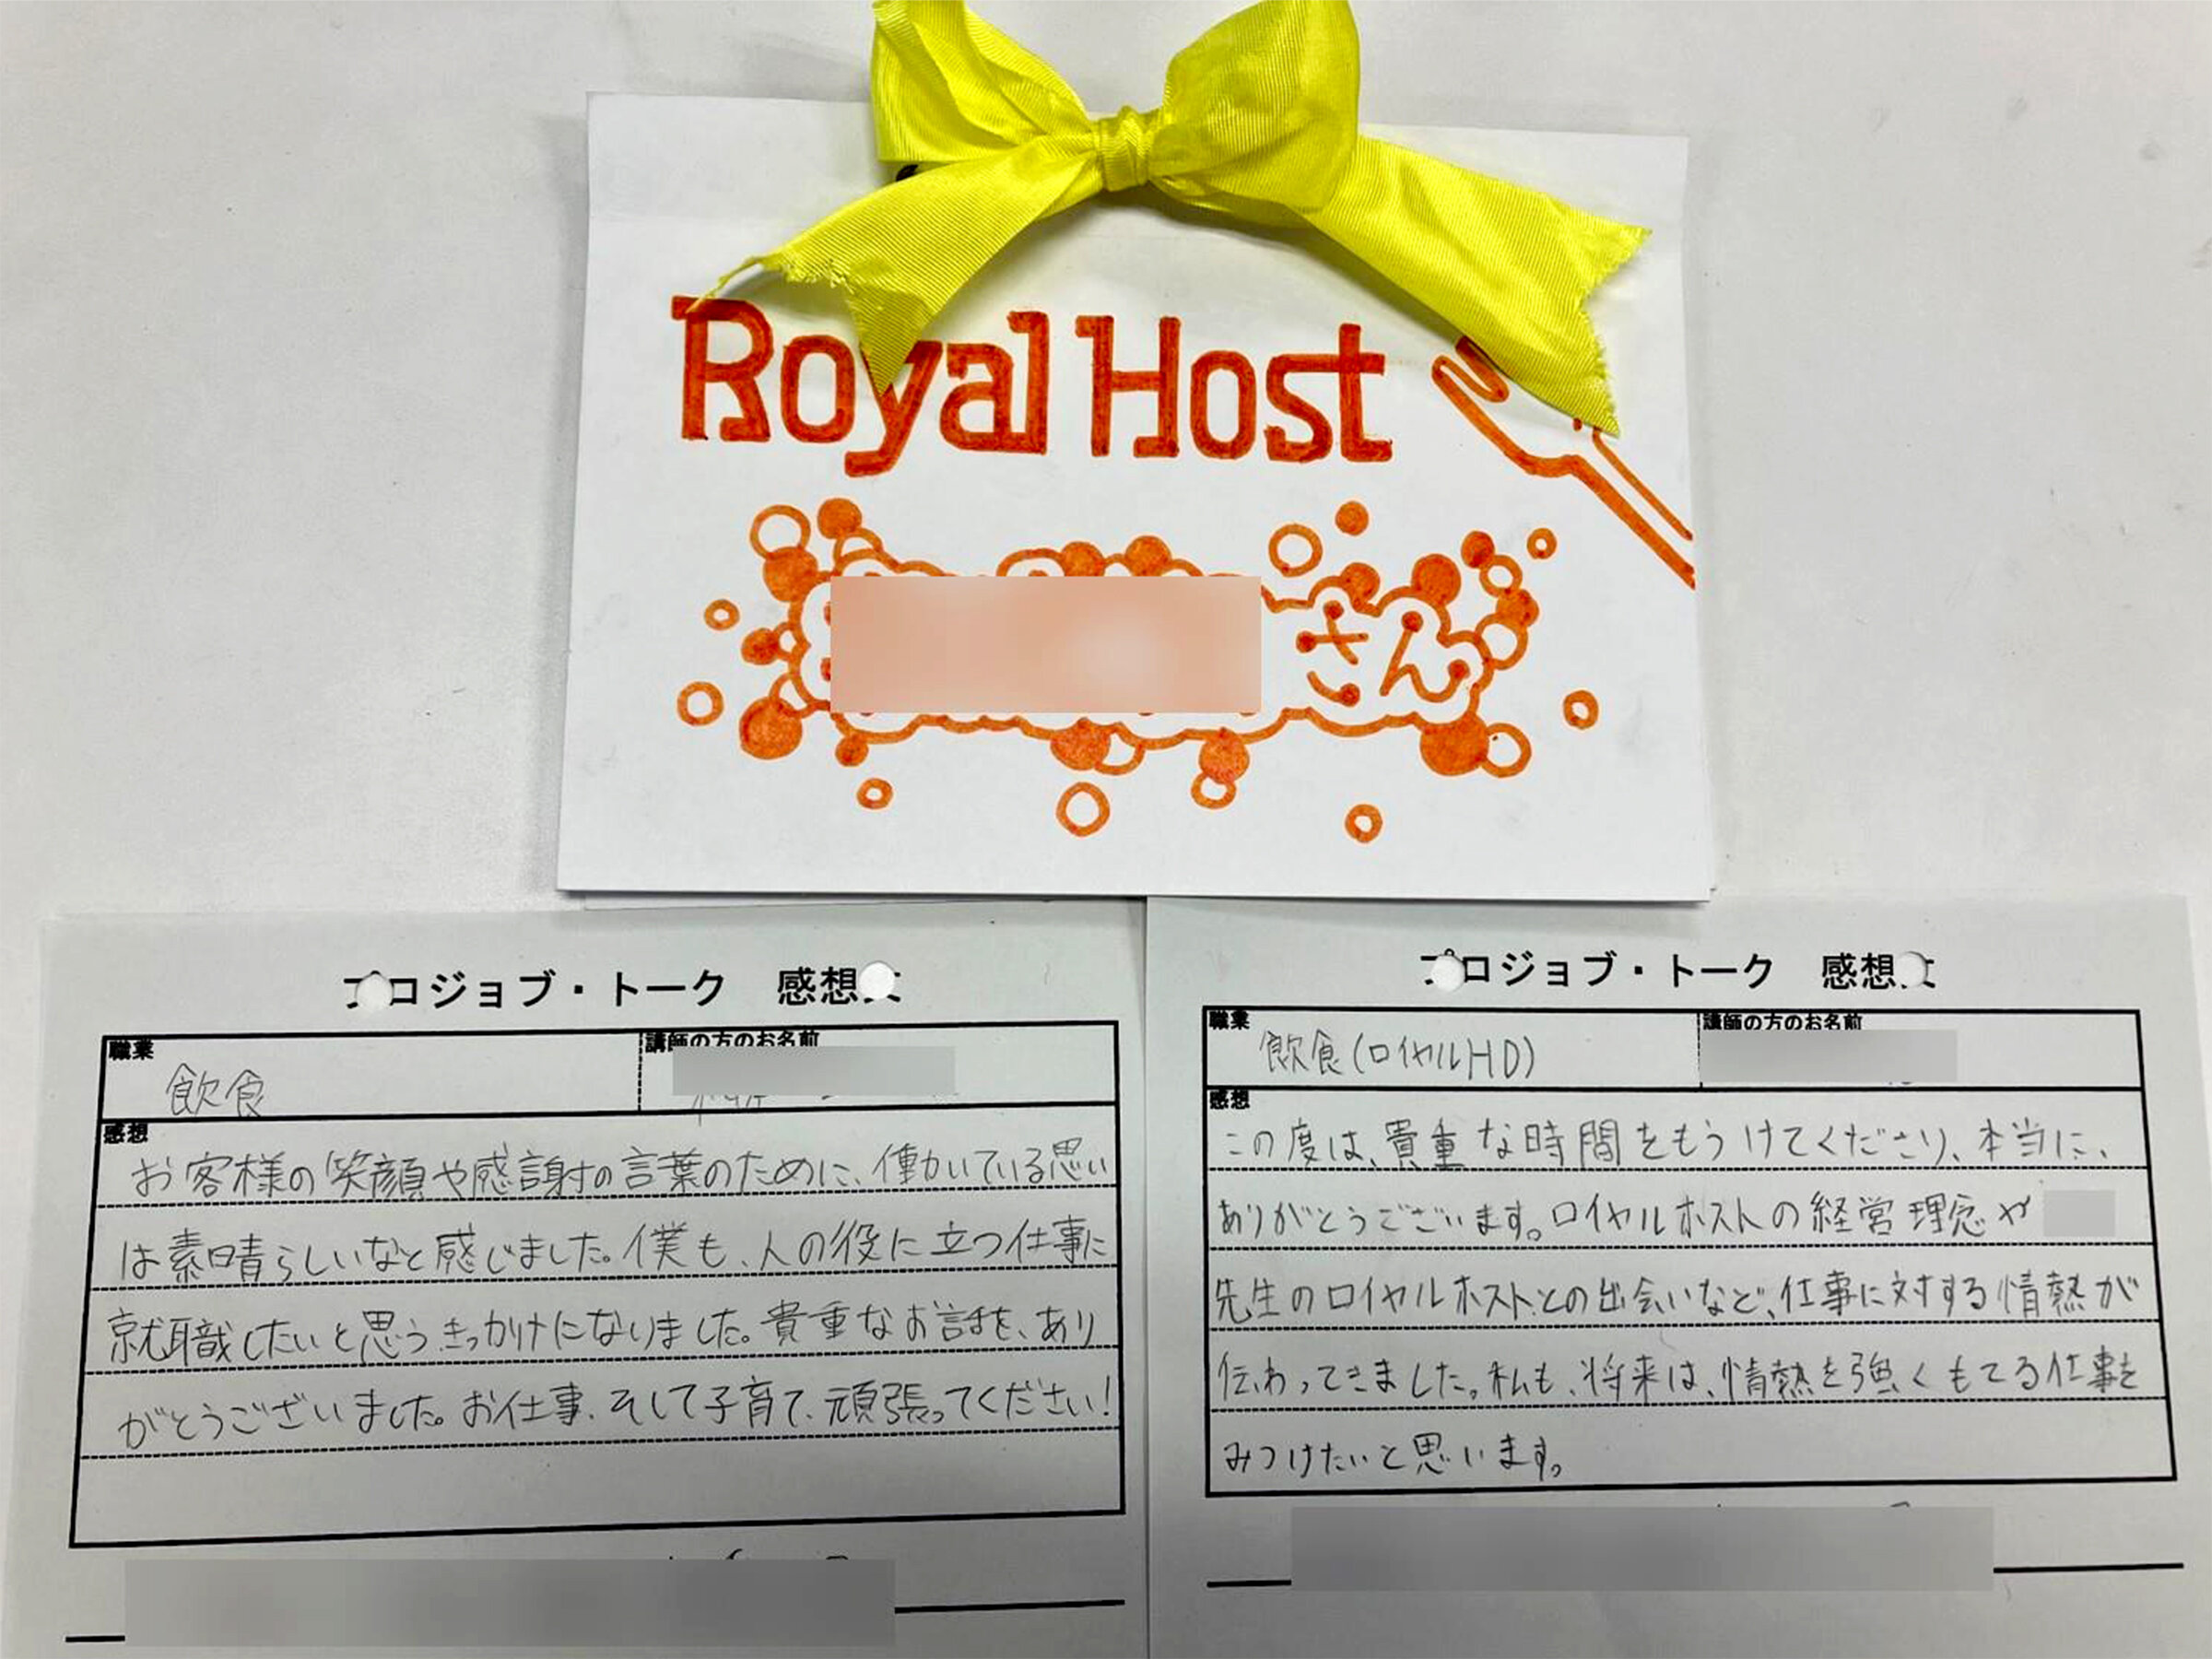 Royal Host
さん
プロジョブ・トーク 感想文
職業
飲食
講師の方のお名前
感想
お客様の笑顔や感謝の言葉のために、働かいている思い
は素晴らしいなと感じました。僕も、人の役に立つ仕事に
就職したいと思うきっかけになりました。貴重なお話を、あり
がとうございました。お仕事、そして子育て、頑張ってください!
プロジョブ・トーク 感想文
職業
飲食(ロイヤルHD)
講師の方のお名前
感想
この度は、貴重な時間をもうけてくださり、本当に、
ありがとうございます。ロイヤルホストの経営理念や
先生のロイヤルホストとの出会いなど、仕事に対する情熱が
伝わってきました。私も、将来は、情熱を強くもてる仕事を
みつけたいと思います。